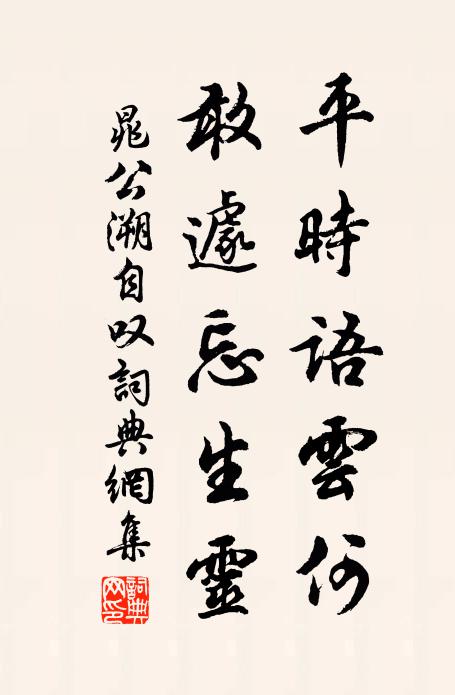 平時語雲何
敢遽忘生靈
晁公溯自叹詞典網集
詞典网印